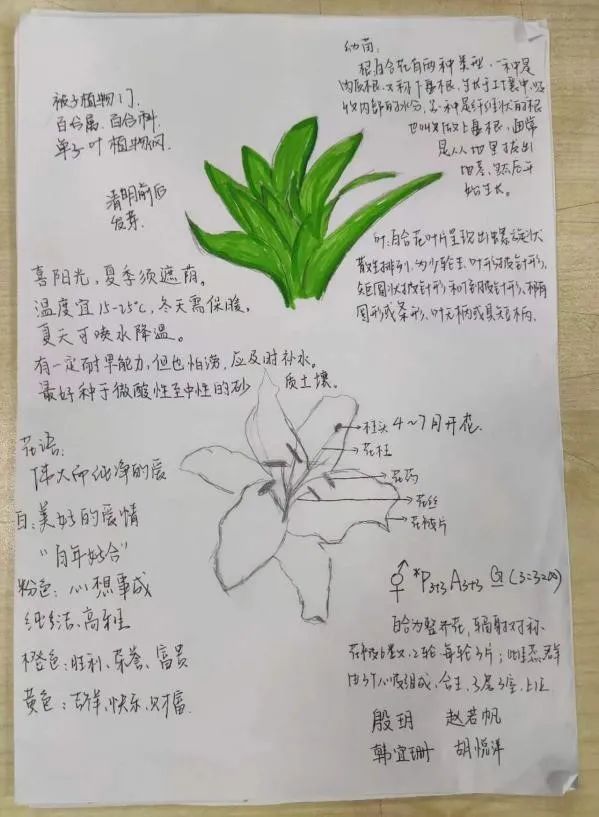 被子植物门.
百合属. 百合科.
单子叶植物纲.
清明前后
发芽.
幼苗:
根:百合花有两种类型,一种是
肉质根,又称下基根,生长于土壤中,吸
收内部的水分,另一种是纤维状的根
也叫做上基根,通常
是从地里发出
地茎,然后开
始生长。
叶:百合花叶片呈现出螺旋状
散生排列,为少轮生,叶形披针形,
矩圆状披针形和倒披针形,椭
圆形或条形,叶无柄或具短柄.
喜阳光,夏季须遮荫。
温度宜15-25℃,冬天需保暖,
夏天可喷水降温。
有一定耐旱能力,但也怕涝,应及时补水。
最好种于微酸性至中性的砂 质土壤。
柱头 4~7月开花.
花柱
花药
花丝
花被片
花语:
伟大而纯净的爱
白:美好的爱情
“百年好合”
粉色:心想事成
纯洁、高雅
橙色:胜利、荣誉、富贵
黄色:吉祥,快乐,财富.
⚥ *P3+3 A3+3 G(3:3:∞)
百合为整齐花,辐射对称
花被6数,2轮,每轮3片;雌蕊群
由3个心皮组成,合生,3层3室,上位.
殷玥 赵若帆
韩宜珊 胡悦洋